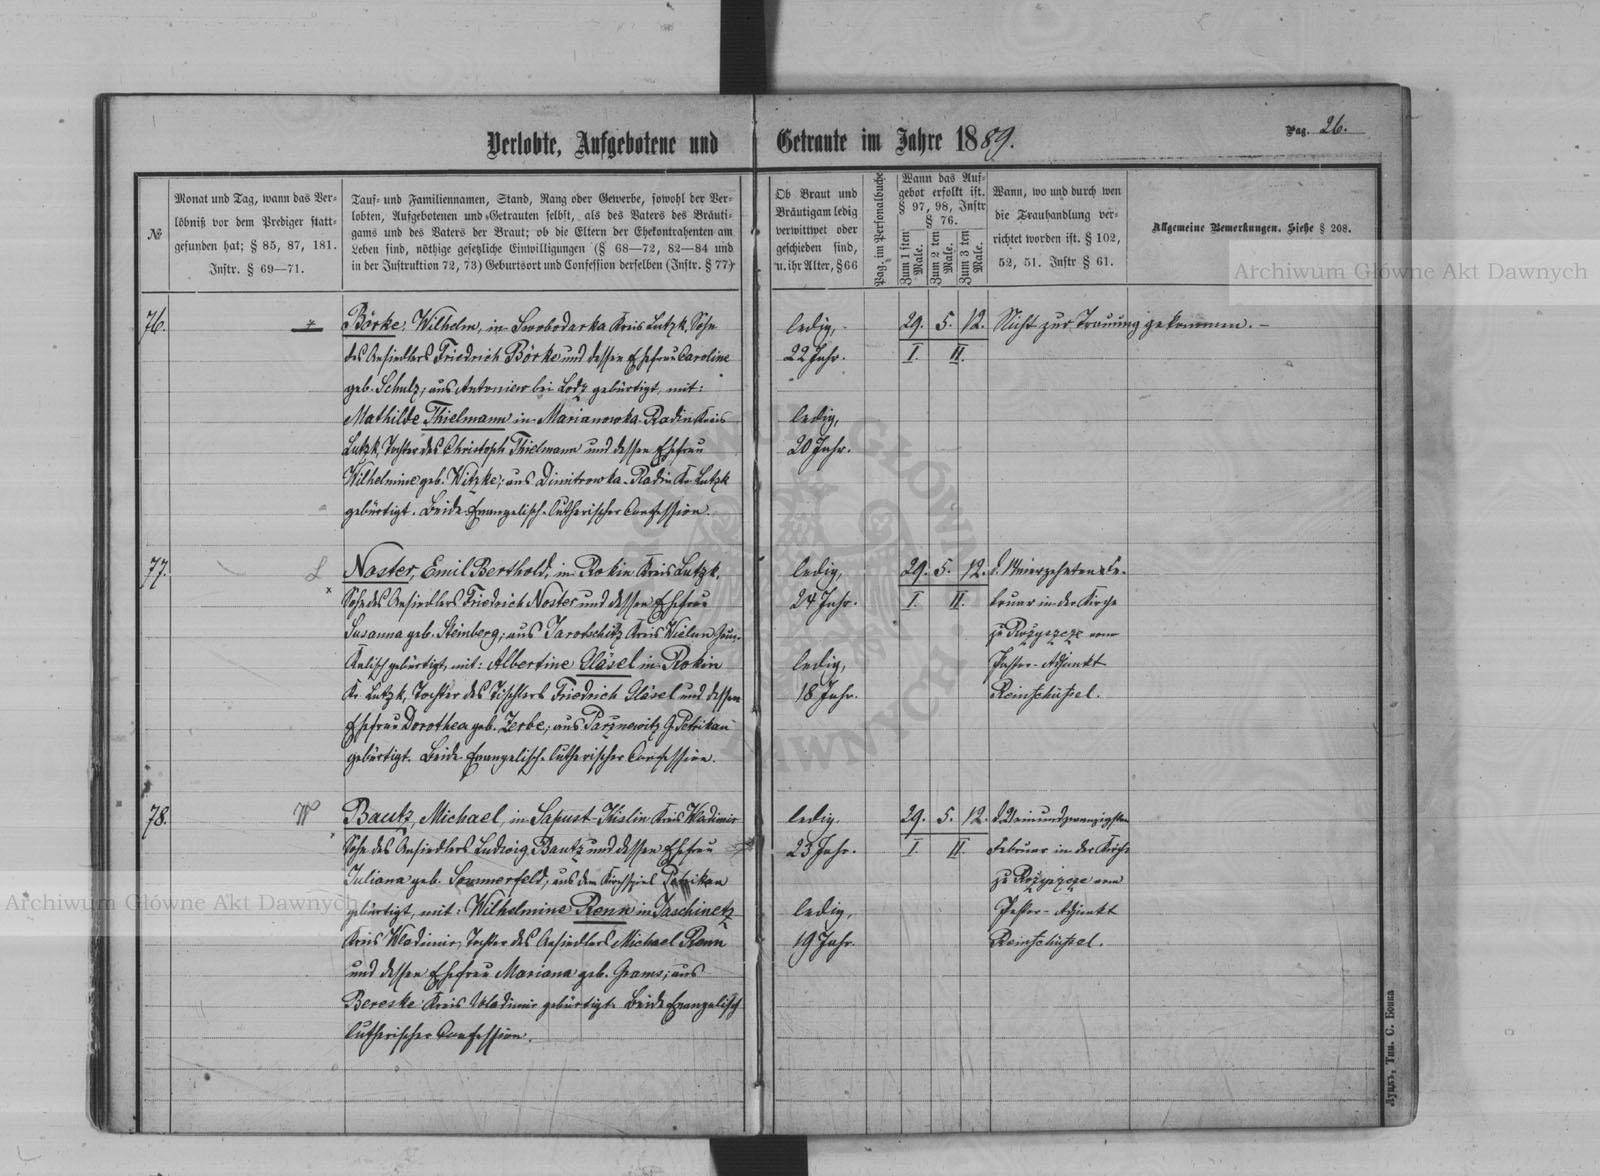 Verlobte, Aufgebotene und Getraute im Jahre 1889.
Pag. 26.
№
Monat und Tag, wann das Ver-
löbniß vor dem Prediger statt-
gefunden hat; § 85, 87, 181.
Instr. § 69—71.
Tauf- und Familiennamen, Stand, Rang oder Gewerbe, sowohl der Ver-
lobten, Aufgebotenen und Getrauten selbst, als des Vaters des Bräuti-
gams und des Vaters der Braut; ob die Eltern der Ehekontrahenten am
Leben sind, nöthige gesetzliche Einwilligungen (§ 68—72, 82—84 und
in der Instruktion 72, 73) Geburtsort und Confession derselben (Instr. § 77)
Ob Braut und
Bräutigam ledig
verwittwet oder
geschieden sind,
u. ihr Alter, § 66
Pag. im Personalbuche
Wann das Auf-
gebot erfolgt ist.
§ 97, 98, Instr
§ 76.
Zum 1 sten Male.
Zum 2 ten Male.
Zum 3 ten Male.
Wann, wo und durch wen
die Trauhandlung ver-
richtet worden ist. § 102,
52, 51. Instr § 61.
Allgemeine Bemerkungen. Siehe § 208.
Archiwum Główne Akt Dawnych
76. Börke, Wilhelm, in Swobodarka Kreis Lutzk, Sohn ledig, 29. 5. 12. Nicht zur Trauung gekommen. –
des Ansiedlers Friedrich Börke und dessen Ehefrau Caroline 22 Jahr. I. II.
geb. Schulz; aus Antoniew bei Lodz gebürtigt, mit:
Mathilde Thielmann in Marianowka-Radin Kreis ledig,
Lutzk, Tochter des Christoph Thielmann und dessen Ehefrau 20 Jahr.
Wilhelmine geb. Witzke; aus Dimitrowka-Radin Kr. Lutzk
gebürtigt. Beide Evangelisch-Lutherischer Confession.
77. L Noster, Emil Berthold, in Rokin Kreis Lutzk, ledig, 29. 5. 12. d. Vierzehnten Fe-
Sohn des Ansiedlers Friedrich Noster und dessen Ehefrau 24 Jahr. I. II. bruar in der Kirche
Susanna geb. Steinberg; aus Jarotschitz Kreis Wielun Gouv. zu Rożyszcze vom
Kalisch gebürtigt, mit: Albertine Gläsel in Rokin ledig, Pastor-Adjunkt
Kr. Lutzk, Tochter des Tischlers Friedrich Gläsel und dessen 18 Jahr. Reinschüssel.
Ehefrau Dorothea geb. Zerbe; aus Parznewitz G. Petrikau
gebürtigt. Beide Evangelisch-Lutherischer Confession.
78. W Bautz, Michael, in Sapust-Kislin Kreis Wladimir ledig, 29. 5. 12. d. Einundzwanzigsten
Sohn des Ansiedlers Ludwig Bautz und dessen Ehefrau 23 Jahr. I. II. Februar in der Kirche
Juliana geb. Sommerfeld; aus dem Kirchspiel Petrikau zu Rożyszcze vom
gebürtigt, mit: Wilhelmine Renn in Jaschinetz ledig, Pastor-Adjunkt
Kreis Wladimir, Tochter des Ansiedlers Michael Renn 19 Jahr. Reinschüssel.
und dessen Ehefrau Mariana geb. Grams; aus
Bereske Kreis Wladimir gebürtigt. Beide Evangelisch
Lutherischer Confession.
Archiwum Główne Akt Dawnych
Луцкъ, Тип. С. Бонка